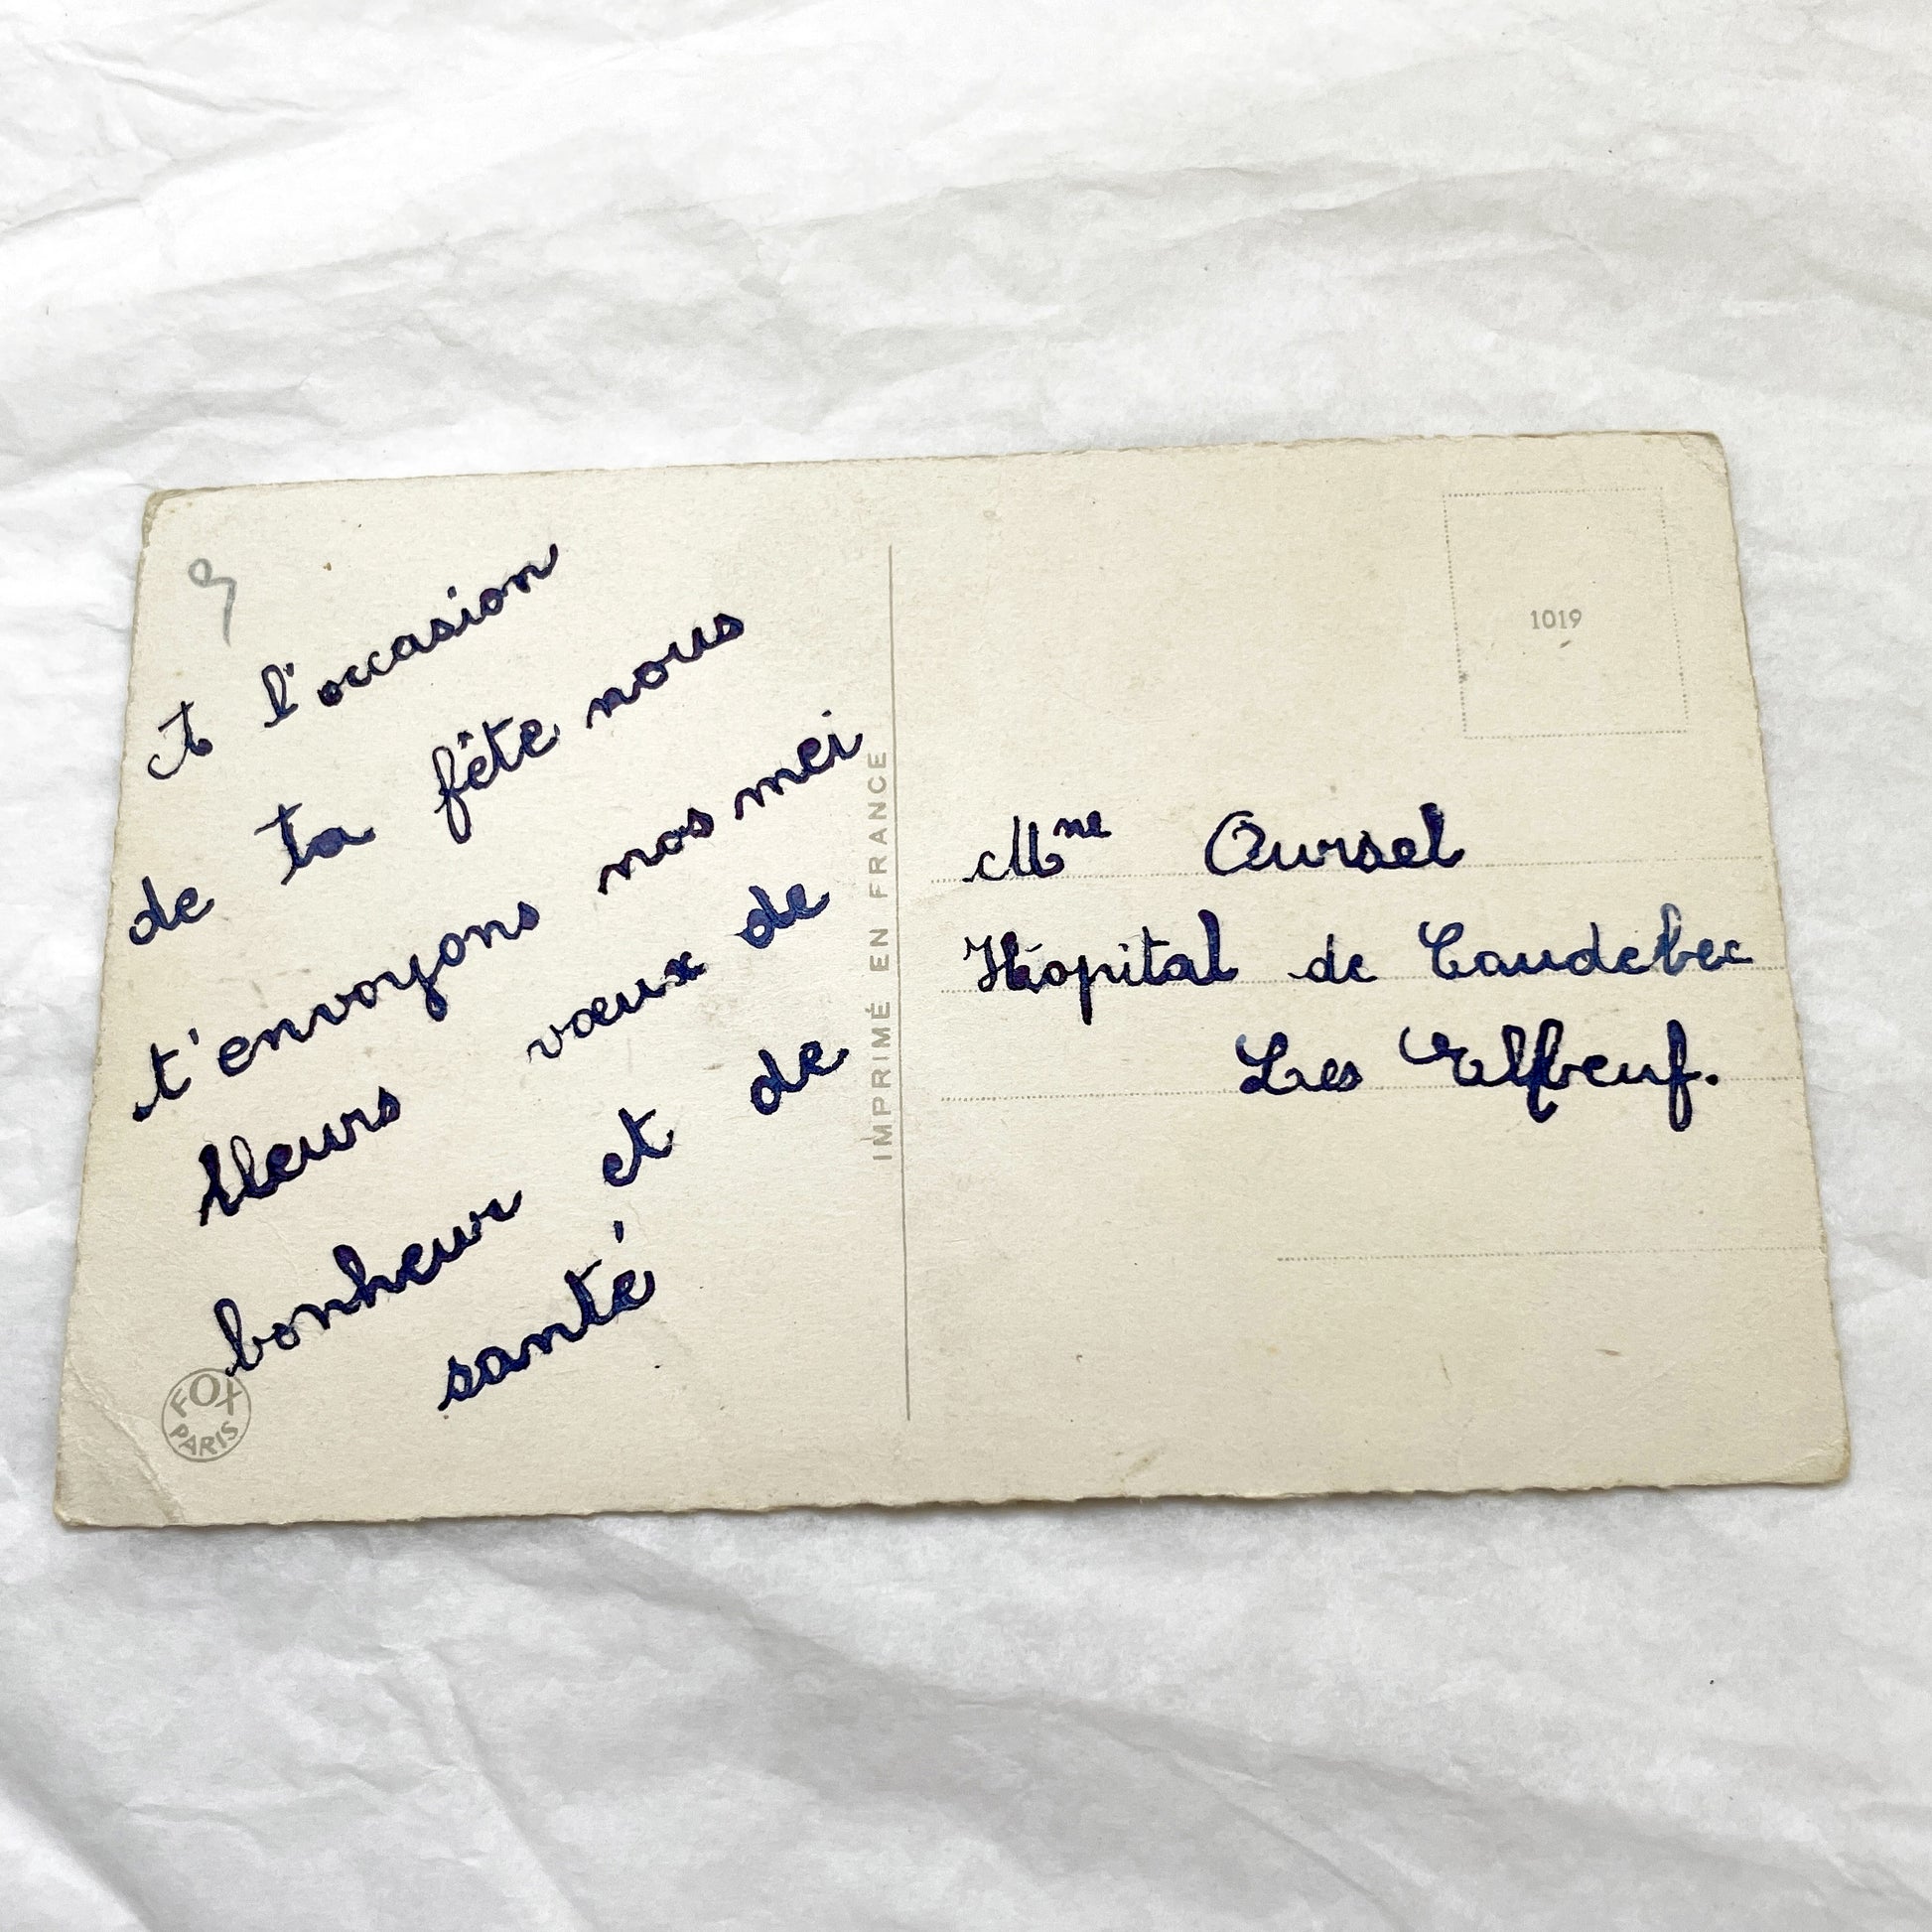 9
A l'occasion
de ta fête nous
t'envoyons nos mei
lleurs vœux de
bonheur et de
santé
FOX
PARIS
IMPRIMÉ EN FRANCE
1019
Mme Oursel
Hôpital de Caudebec
Les Elbeuf.